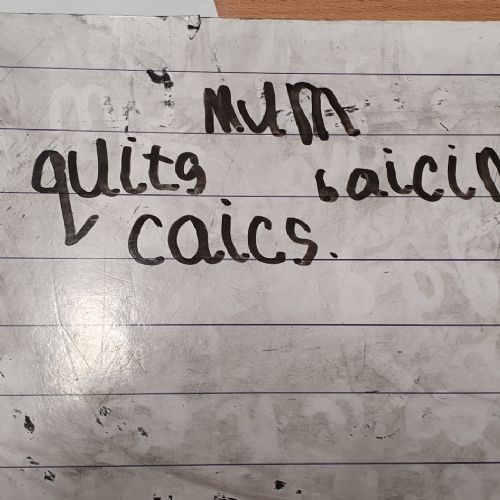 mum
quits baicin
caics.